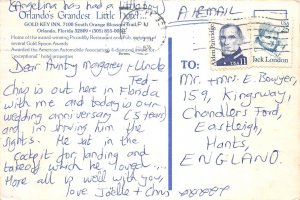 (Angelina has had a little boy)
Orlando's Grandest Little Hotel
GOLD KEY INN, 7100 South Orange Blossom Trail
Orlando, Florida 32809 • (305) 855-0050
Home of the award winning Piccadilly Restaurant and
several Gold Spoon Awards
Awarded the American Automobile Association's 4 diamond
"exceptional" hotel properties
Dear Aunty Margaret & Uncle
Ted -
Chris is out here in Florida
with me and today is our
wedding anniversary (5 years)
and I'm showing him the
sights. He sat in the
cockpit for landing and
takeoff which he loved...
Hope all is well with you,
love Joëlle + Chris
AIRMAIL
Jack London
TO:
Mr. & Mrs. E. Bowyer,
159, Kingsway,
Chandlers Ford,
Eastleigh,
Hants,
ENGLAND.